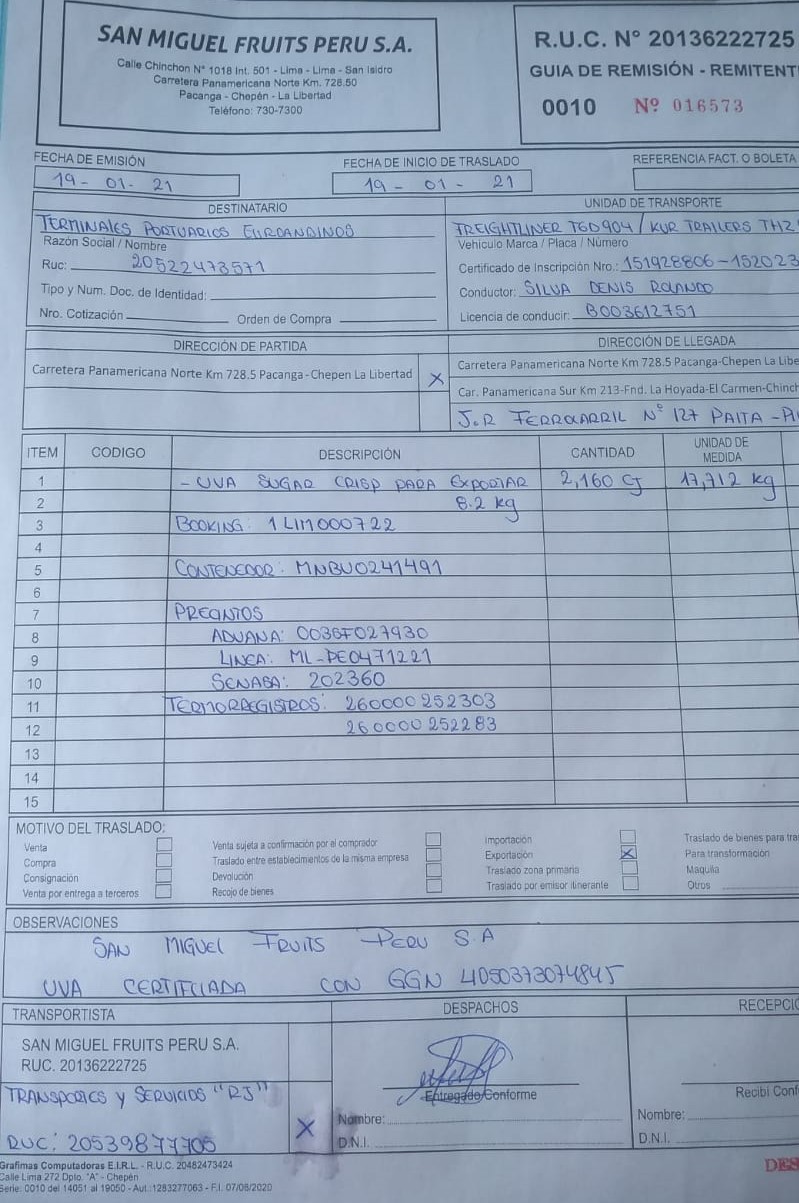 SAN MIGUEL FRUITS PERU S.A.
Calle Chinchon N° 1018 Int. 501 - Lima - Lima - San Isidro
Carretera Panamericana Norte Km. 728.50
Pacanga - Chepén - La Libertad
Teléfono: 730-7300
R.U.C. N° 20136222725
GUIA DE REMISIÓN - REMITENT
0010 Nº 016573
FECHA DE EMISIÓN
19 - 01 - 21
FECHA DE INICIO DE TRASLADO
19 - 01 - 21
REFERENCIA FACT. O BOLETA
DESTINATARIO
TERMINALES PORTUARIOS EUROANDINOS
Razón Social / Nombre
Ruc: 20522473571
Tipo y Num. Doc. de Identidad:
Nro. Cotización Orden de Compra
UNIDAD DE TRANSPORTE
FREIGHTLINER T6D904 / KUR TRAILERS TH2
Vehiculo Marca / Placa / Número
Certificado de Inscripción Nro.: 151928806-152023
Conductor: SILVA DENIS ROLANDO
Licencia de conducir: B003612751
DIRECCIÓN DE PARTIDA
Carretera Panamericana Norte Km 728.5 Pacanga-Chepen La Libertad X
DIRECCIÓN DE LLEGADA
Carretera Panamericana Norte Km 728.5 Pacanga-Chepen La Libe
Car. Panamericana Sur Km 213-Fnd. La Hoyada-El Carmen-Chinch
J.R FERROCARRIL N° 127 PAITA -
ITEM CODIGO DESCRIPCIÓN CANTIDAD UNIDAD DE MEDIDA
1 - UVA SUGAR CRISP PARA EXPORTAR 2,160 CJ 17,712 kg
2 8.2 kg
3 BOOKING: 1LIM000722
4
5 CONTENEDOR: MNBU0241491
6
7 PRECINTOS
8 ADUANA: 0036F027930
9 LINEA: ML-PE0471221
10 SENASA: 202360
11 TERMORREGISTROS: 260000252303
12 260000252283
13
14
15
MOTIVO DEL TRASLADO:
Venta Venta sujeta a confirmación por el comprador Importación Traslado de bienes para tra
Compra Traslado entre establecimientos de la misma empresa Exportación X Para transformación
Consignación Devolución Traslado zona primaria Maquila
Venta por entrega a terceros Recojo de bienes Traslado por emisor itinerante Otros
OBSERVACIONES
SAN MIGUEL FRUITS PERU S.A
UVA CERTIFCIADA CON GGN 4050373074845
TRANSPORTISTA
SAN MIGUEL FRUITS PERU S.A.
RUC. 20136222725
TRANSPORTES Y SERVICIOS "RJ"
RUC: 20539877705 X
DESPACHOS
Entregado Conforme
Nombre:
D.N.I.
RECEPCIO
Recibi Conf
Nombre:
D.N.I.
Grafimas Computadoras E.I.R.L. - R.U.C. 20482473424
Calle Lima 272 Dpto. "A" - Chepén
Serie: 0010 del 14051 al 19050 - Aut.:1283277063 - F.I. 07/08/2020
DES